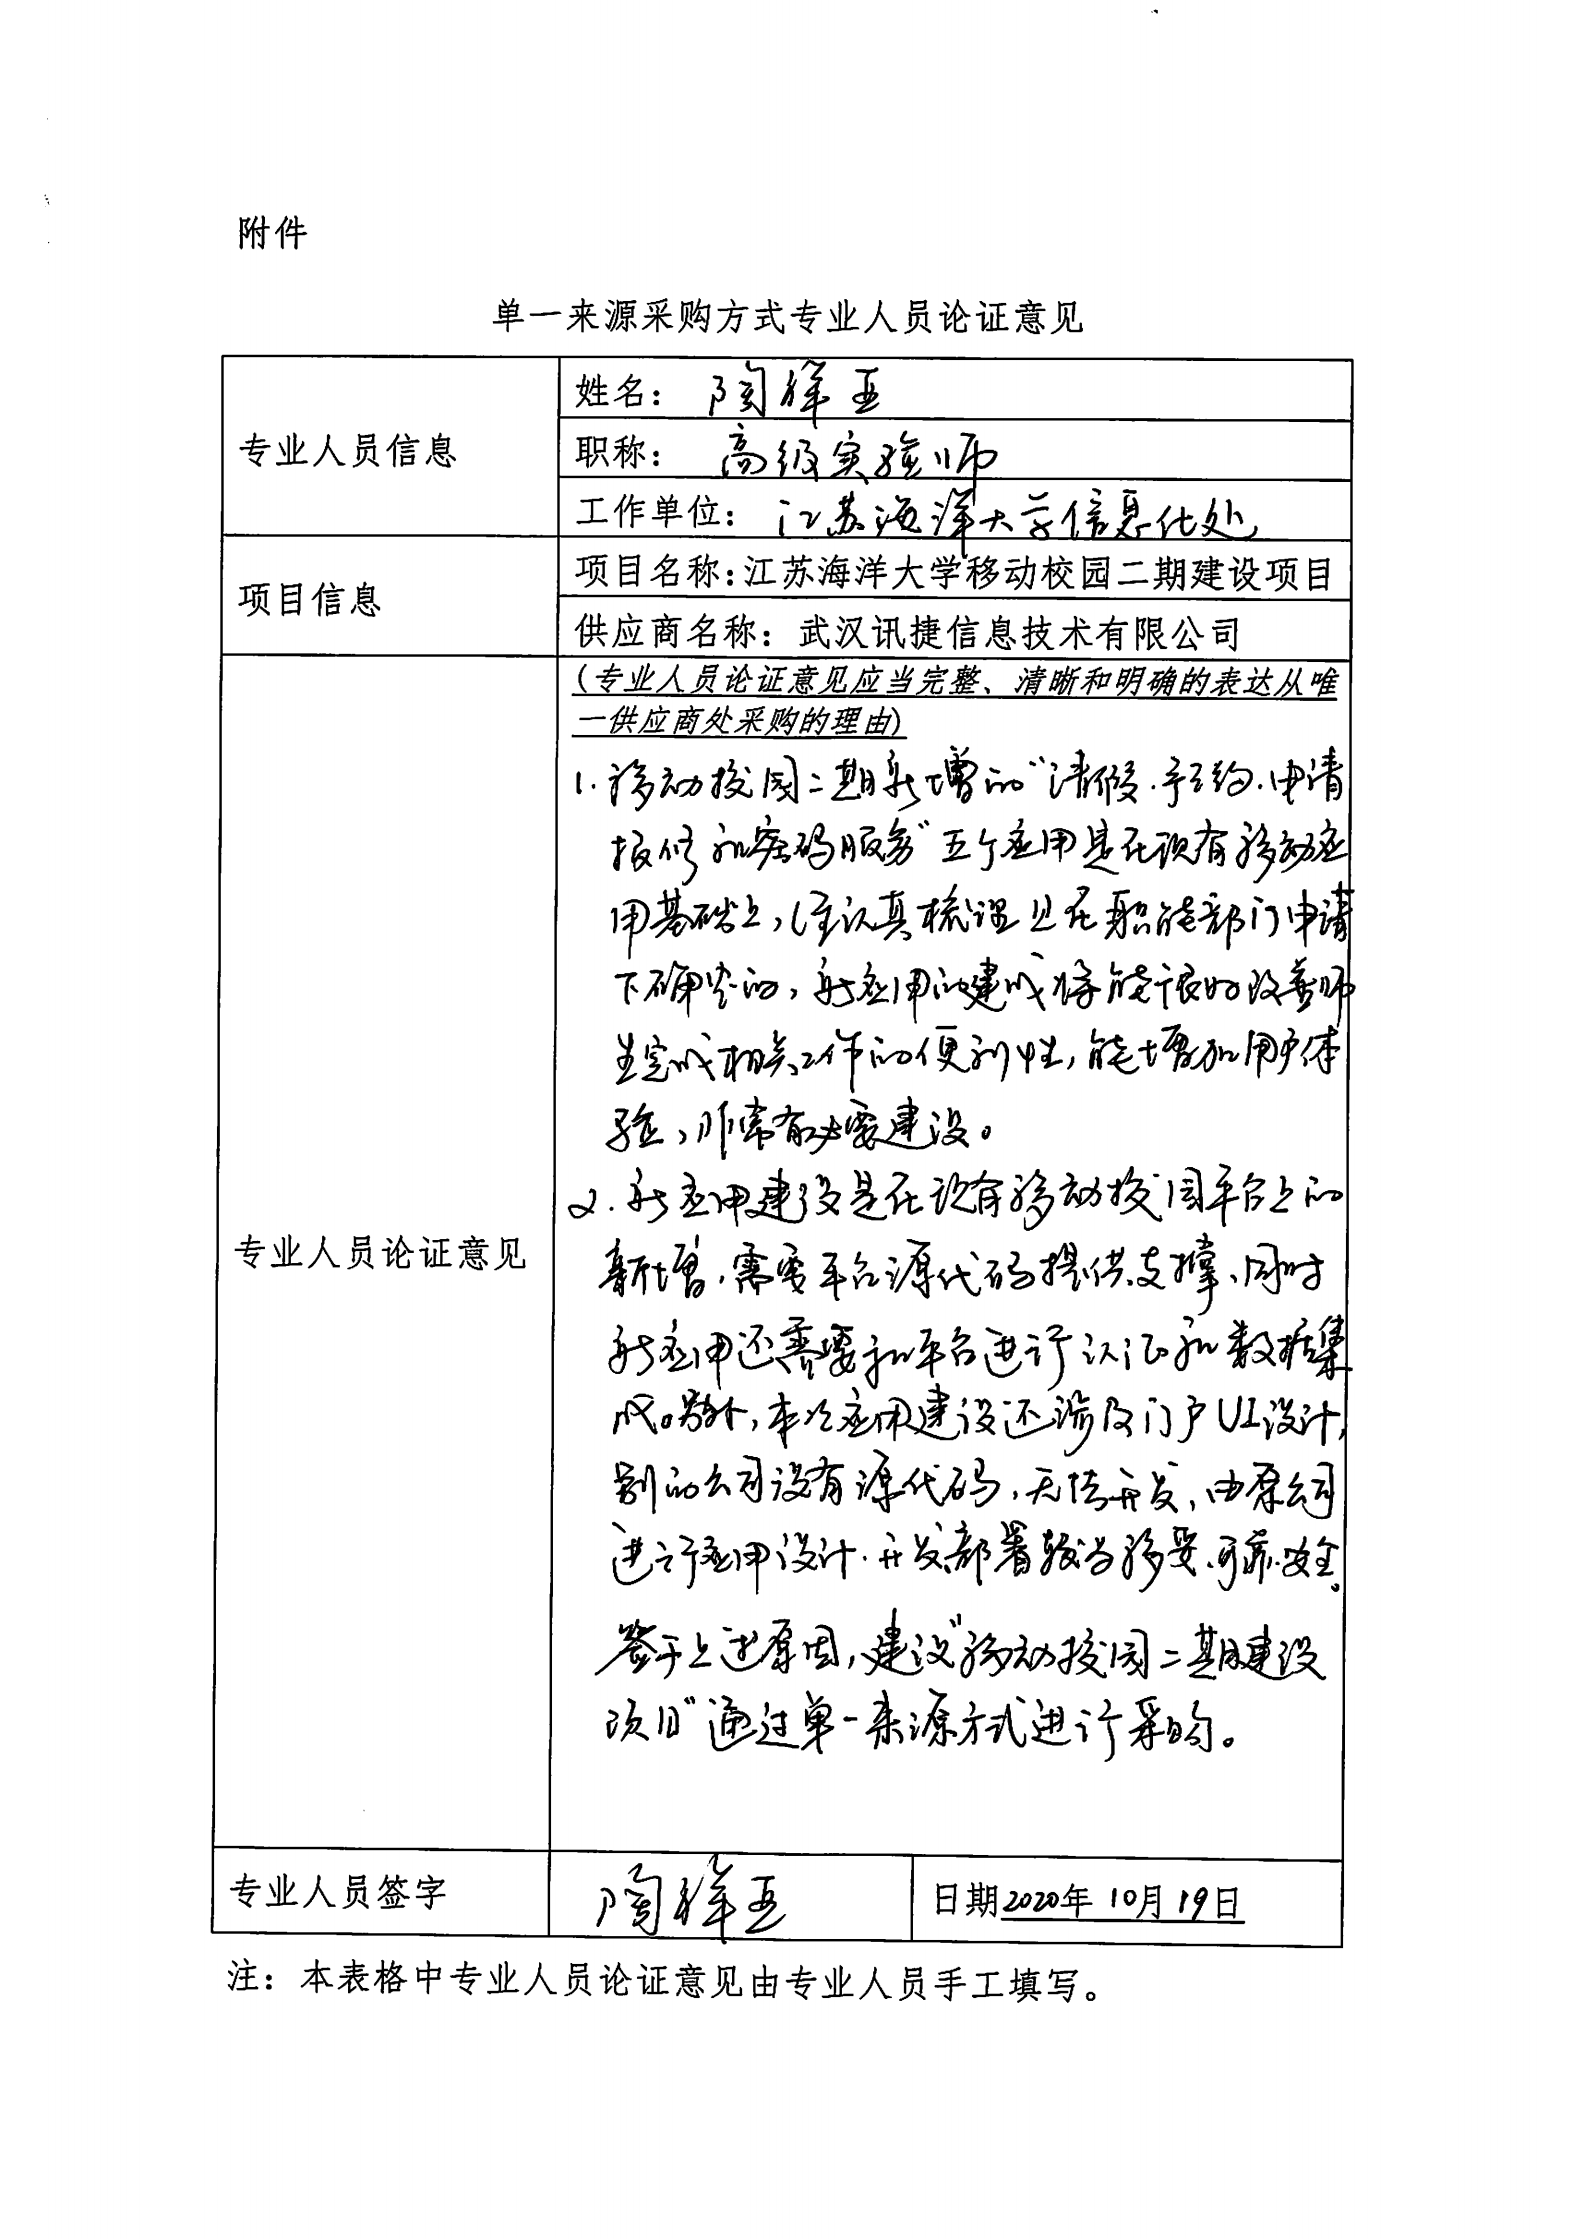 附件
单一来源采购方式专业人员论证意见
专业人员信息
姓名：陶祥亚
职称：高级实验师
工作单位：江苏海洋大学信息化处
项目信息
项目名称：江苏海洋大学移动校园二期建设项目
供应商名称：武汉讯捷信息技术有限公司
专业人员论证意见
（专业人员论证意见应当完整、清晰和明确的表达从唯
一供应商处采购的理由）
1.移动校园二期新增的“请假.预约.申请
报修和密码服务”五个应用是在现有移动应
用基础上，经认真梳理且在职能部门申请
下确定的，新应用的建成将能很好改善师
生完成相关工作的便利性，能增加用户体
验，非常有必要建设。
2.新应用建设是在现有移动校园平台上的
新增，需要平台源代码提供支撑、同时
新应用还需要和平台进行认证和数据集
成。另外，本次应用建设还涉及门户UI设计，
别的公司没有源代码，无法开发，由原公司
进行应用设计.开发部署较为稳妥、可靠.安全。
鉴于上述原因，建议“移动校园二期建设
项目”通过单一来源方式进行采购。
专业人员签字
陶祥亚
日期2020年10月19日
注：本表格中专业人员论证意见由专业人员手工填写。